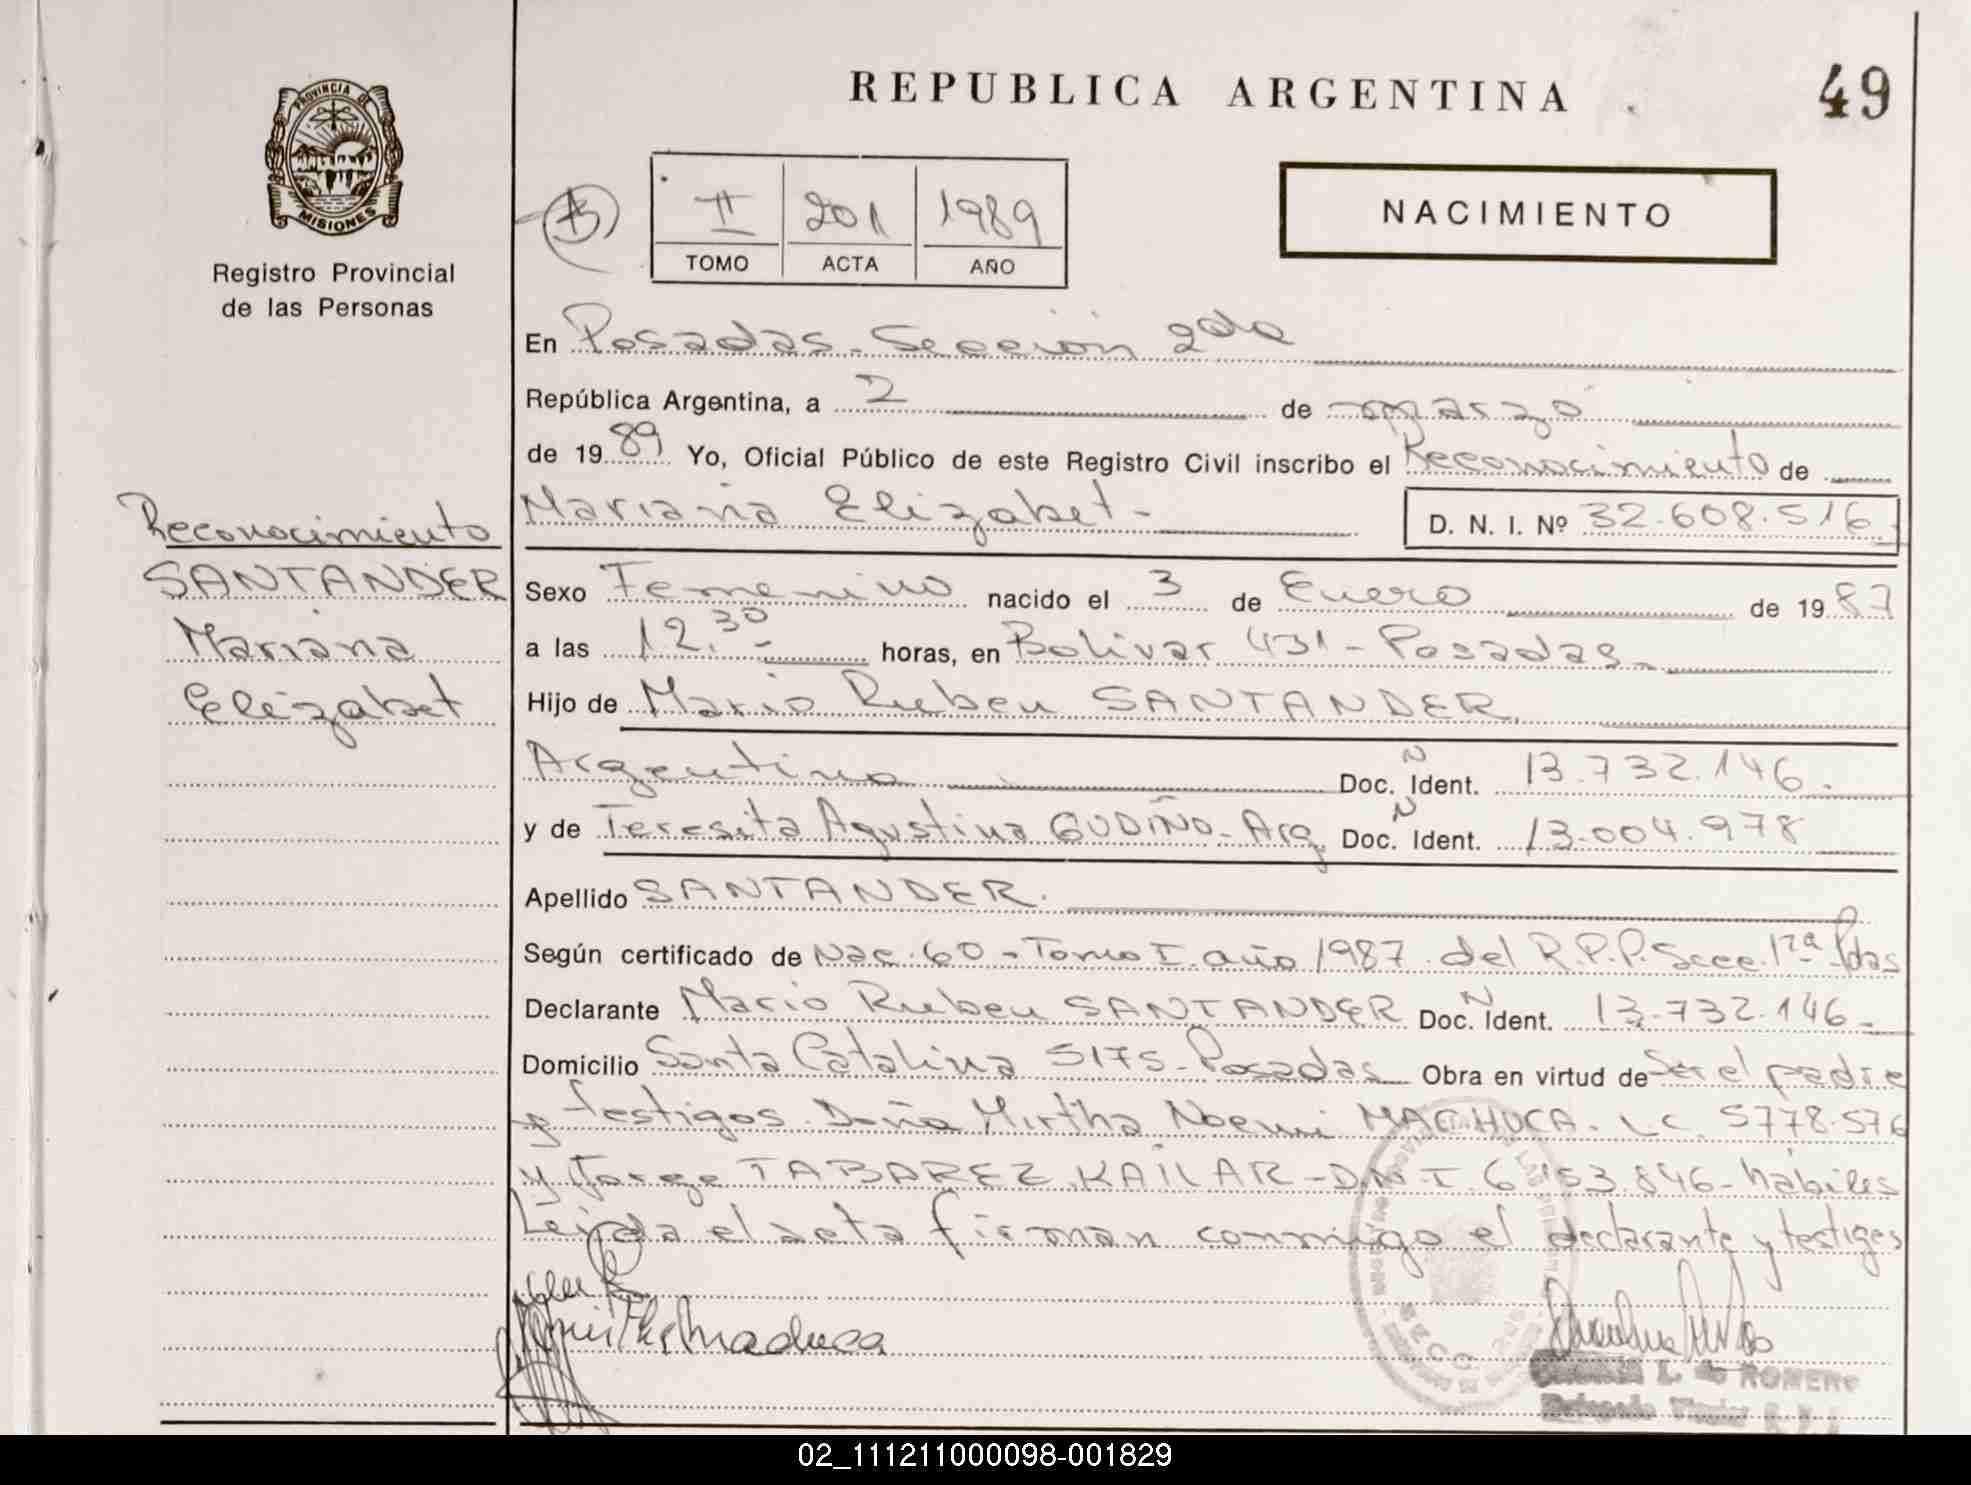 REPUBLICA ARGENTINA
49
PROVINCIA DE
MISIONES
Registro Provincial
de las Personas
II 201 1989
TOMO ACTA AÑO
NACIMIENTO
En Posadas - Sección 2da
República Argentina, a 2 de marzo
de 1989 Yo, Oficial Público de este Registro Civil inscribo el Reconocimiento de
Mariana Elizabet -
D. N. I. Nº 32.608.516
Reconocimiento
SANTANDER
Mariana
Elizabet
Sexo Femenino nacido el 3 de Enero de 1987
a las 12.30 - horas, en Bolivar 431 - Posadas -
Hijo de Mario Ruben SANTANDER
Argentino Doc. N Ident. 13.732.146.
y de Teresita Agustina GUDIÑO - Arg. Doc. N Ident. 13.004.978
Apellido SANTANDER.
Según certificado de Nac. 60 - Tomo I. año 1987. del R.P.P. Secc. 1ra Pdas
Declarante Mario Ruben SANTANDER Doc. N Ident. 13.732.146 -
Domicilio Santa Catalina 5175 - Posadas Obra en virtud de Ser el padre
y testigos. Doña Mirtha Noemi MACHUCA. L.C. 5.778.576
y Jorge TABAREZ KAILAR - D.N.I. 6.153.846 - hábiles
Leida el acta firman conmigo el declarante y testigos
L. de ROMERO
02_111211000098-001829